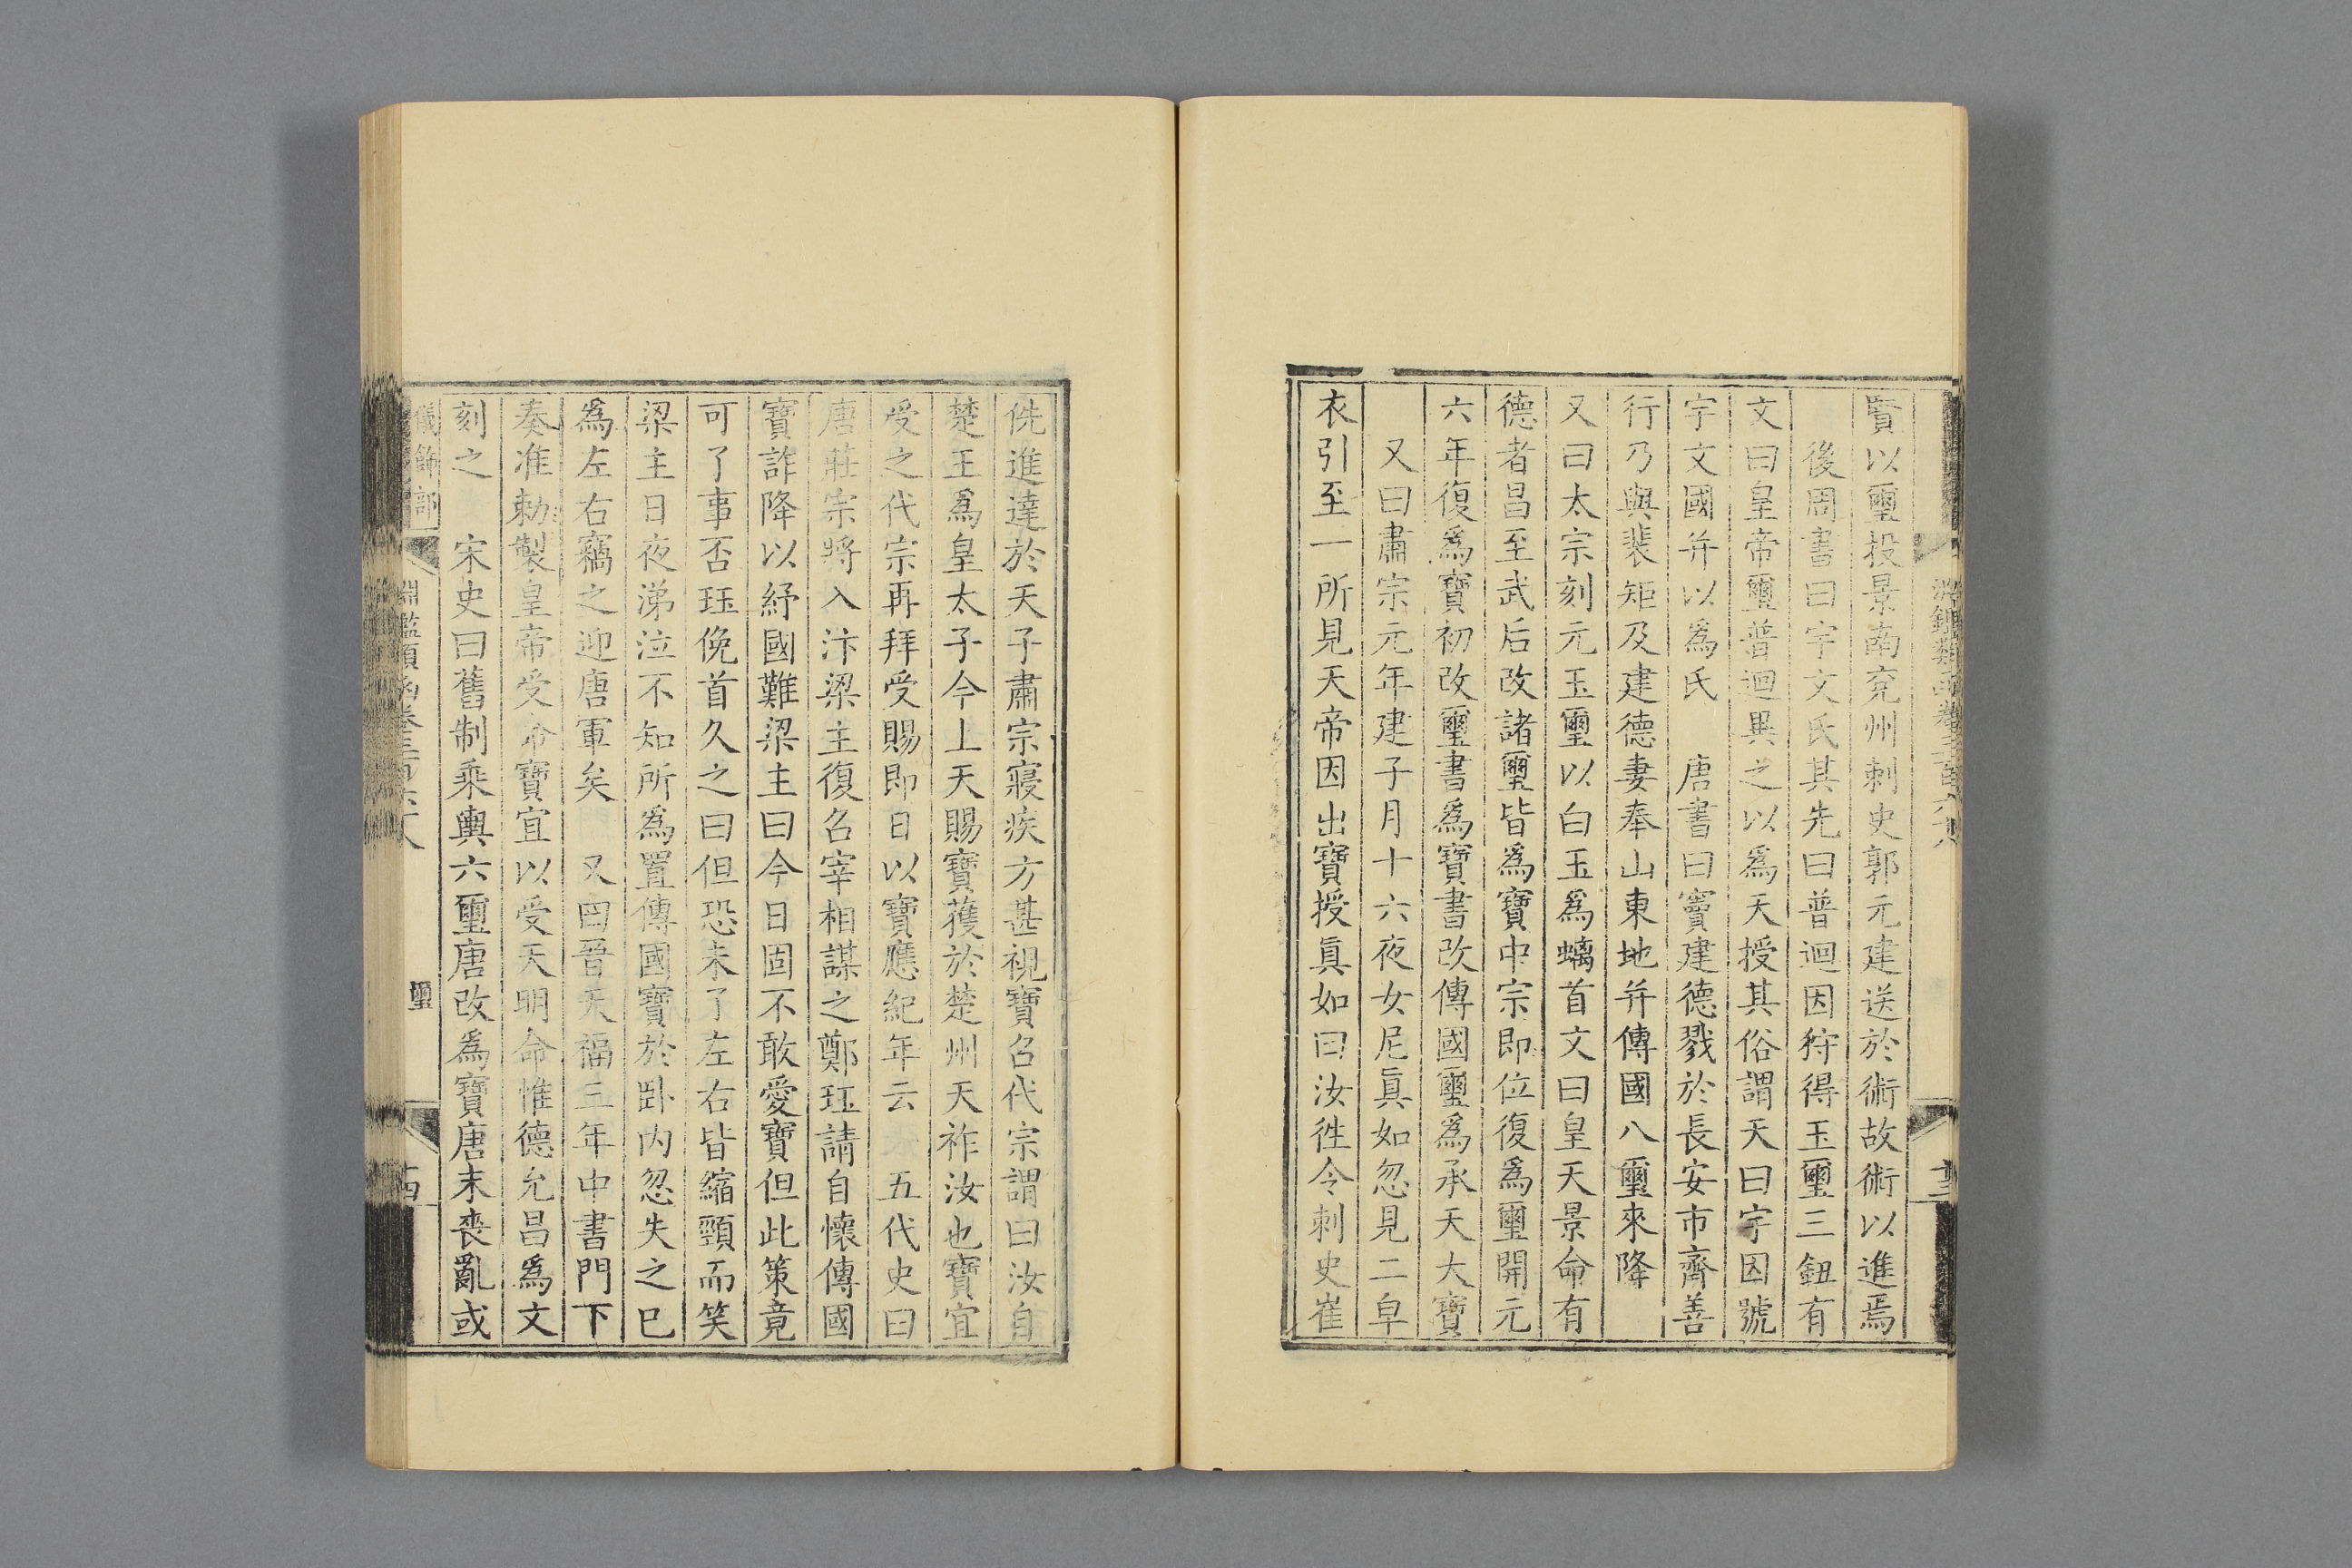 賢以璽投景南兗州刺史郭元建送於術故術以進焉
後周書曰宇文氏其先曰普迴因狩得玉璽三鈕有
文曰皇帝璽普迴異之以爲天授其俗謂天曰宇因號
宇文國并以爲氏　唐書曰竇建德戮於長安市齊善
行乃與裴矩及建德妻奉山東地并傳國八璽來降
又曰太宗刻元玉璽以白玉爲螭首文曰皇天景命有
德者昌至武后改諸璽皆爲寶中宗即位復爲璽開元
六年復爲寶初改璽書爲寶書改傳國璽爲承天大寶
又曰肅宗元年建子月十六夜女尼眞如忽見二皁
衣引至一所見天帝因出寶授眞如曰汝徃令刺史崔
侁進達於天子肅宗寢疾方甚視寶召代宗謂曰汝自
楚王爲皇太子今上天賜寶獲於楚州天祚汝也寶宜
受之代宗再拜受賜即日以寶應紀年云　五代史曰
唐莊宗將入汴梁主復召宰相謀之鄭珏請自懷傳國
寶詐降以紓國難梁主曰今日固不敢愛寶但此策竟
可了事否珏俛首久之曰但恐未了左右皆縮頸而笑
梁主日夜涕泣不知所爲置傳國寶於卧内忽失之已
爲左右竊之迎唐軍矣　又曰晉天福三年中書門下
奏准勅製皇帝受命寶宜以受天明命惟德允昌爲文
刻之　宋史曰舊制乘輿六璽唐改爲寶唐末喪亂或
儀飾部
淵鑑類函卷三百六十八
璽
十四